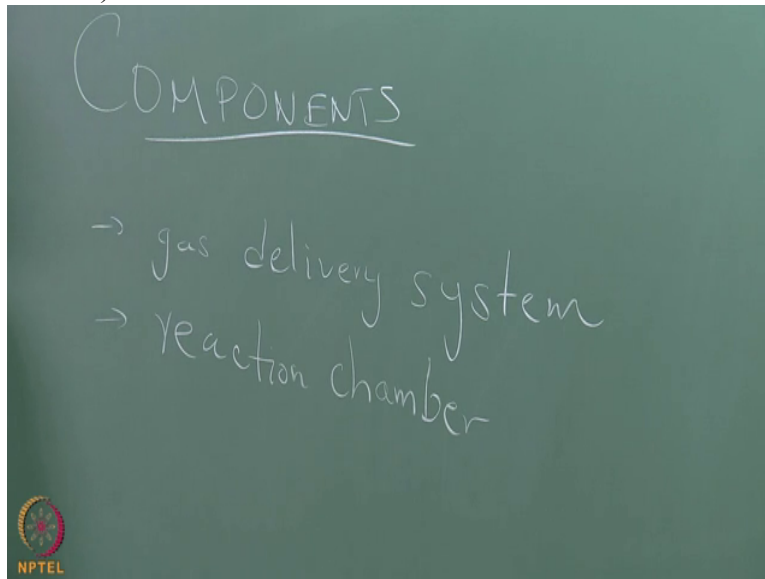 COMPONENTS
→ gas delivery system
→ reaction chamber
NPTEL